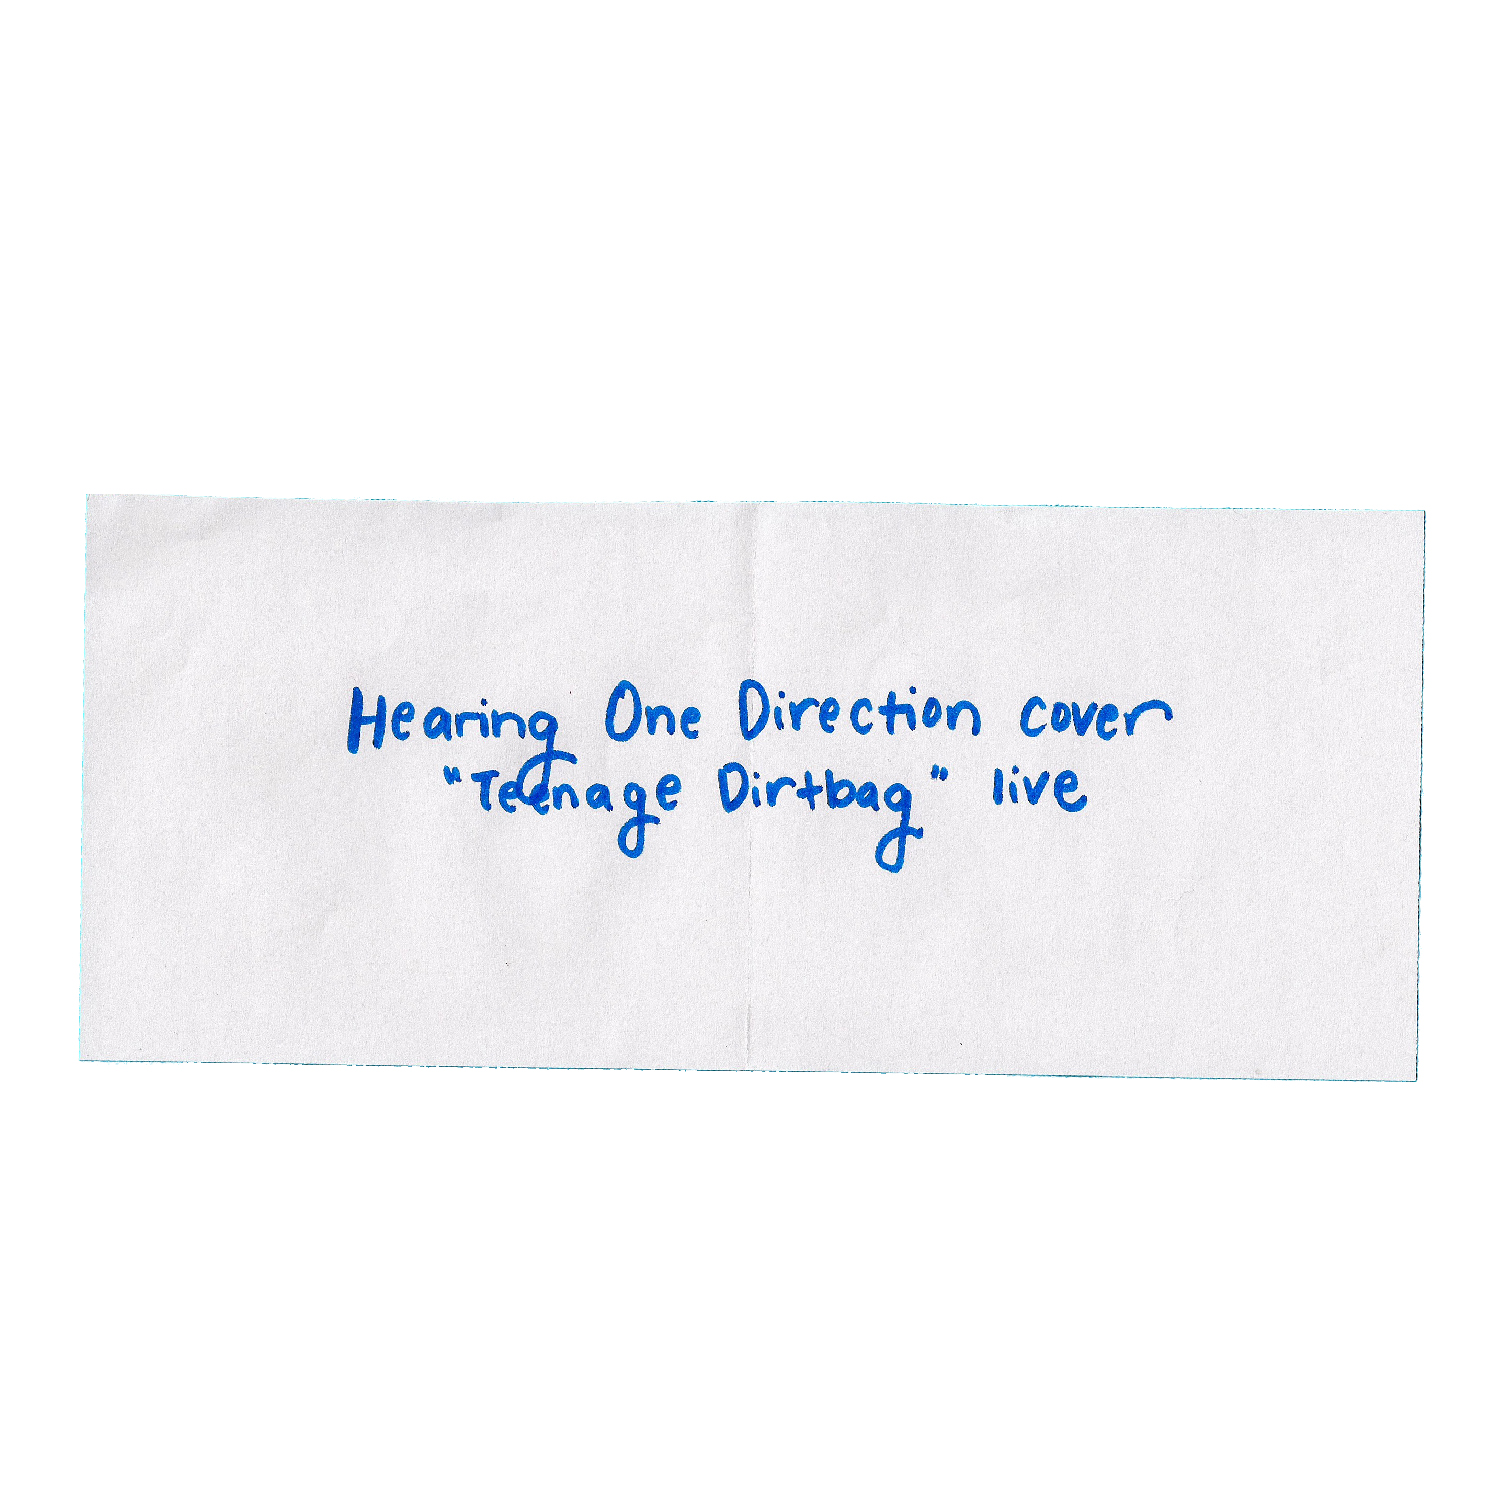 Hearing One Direction cover
"Teenage Dirtbag" live